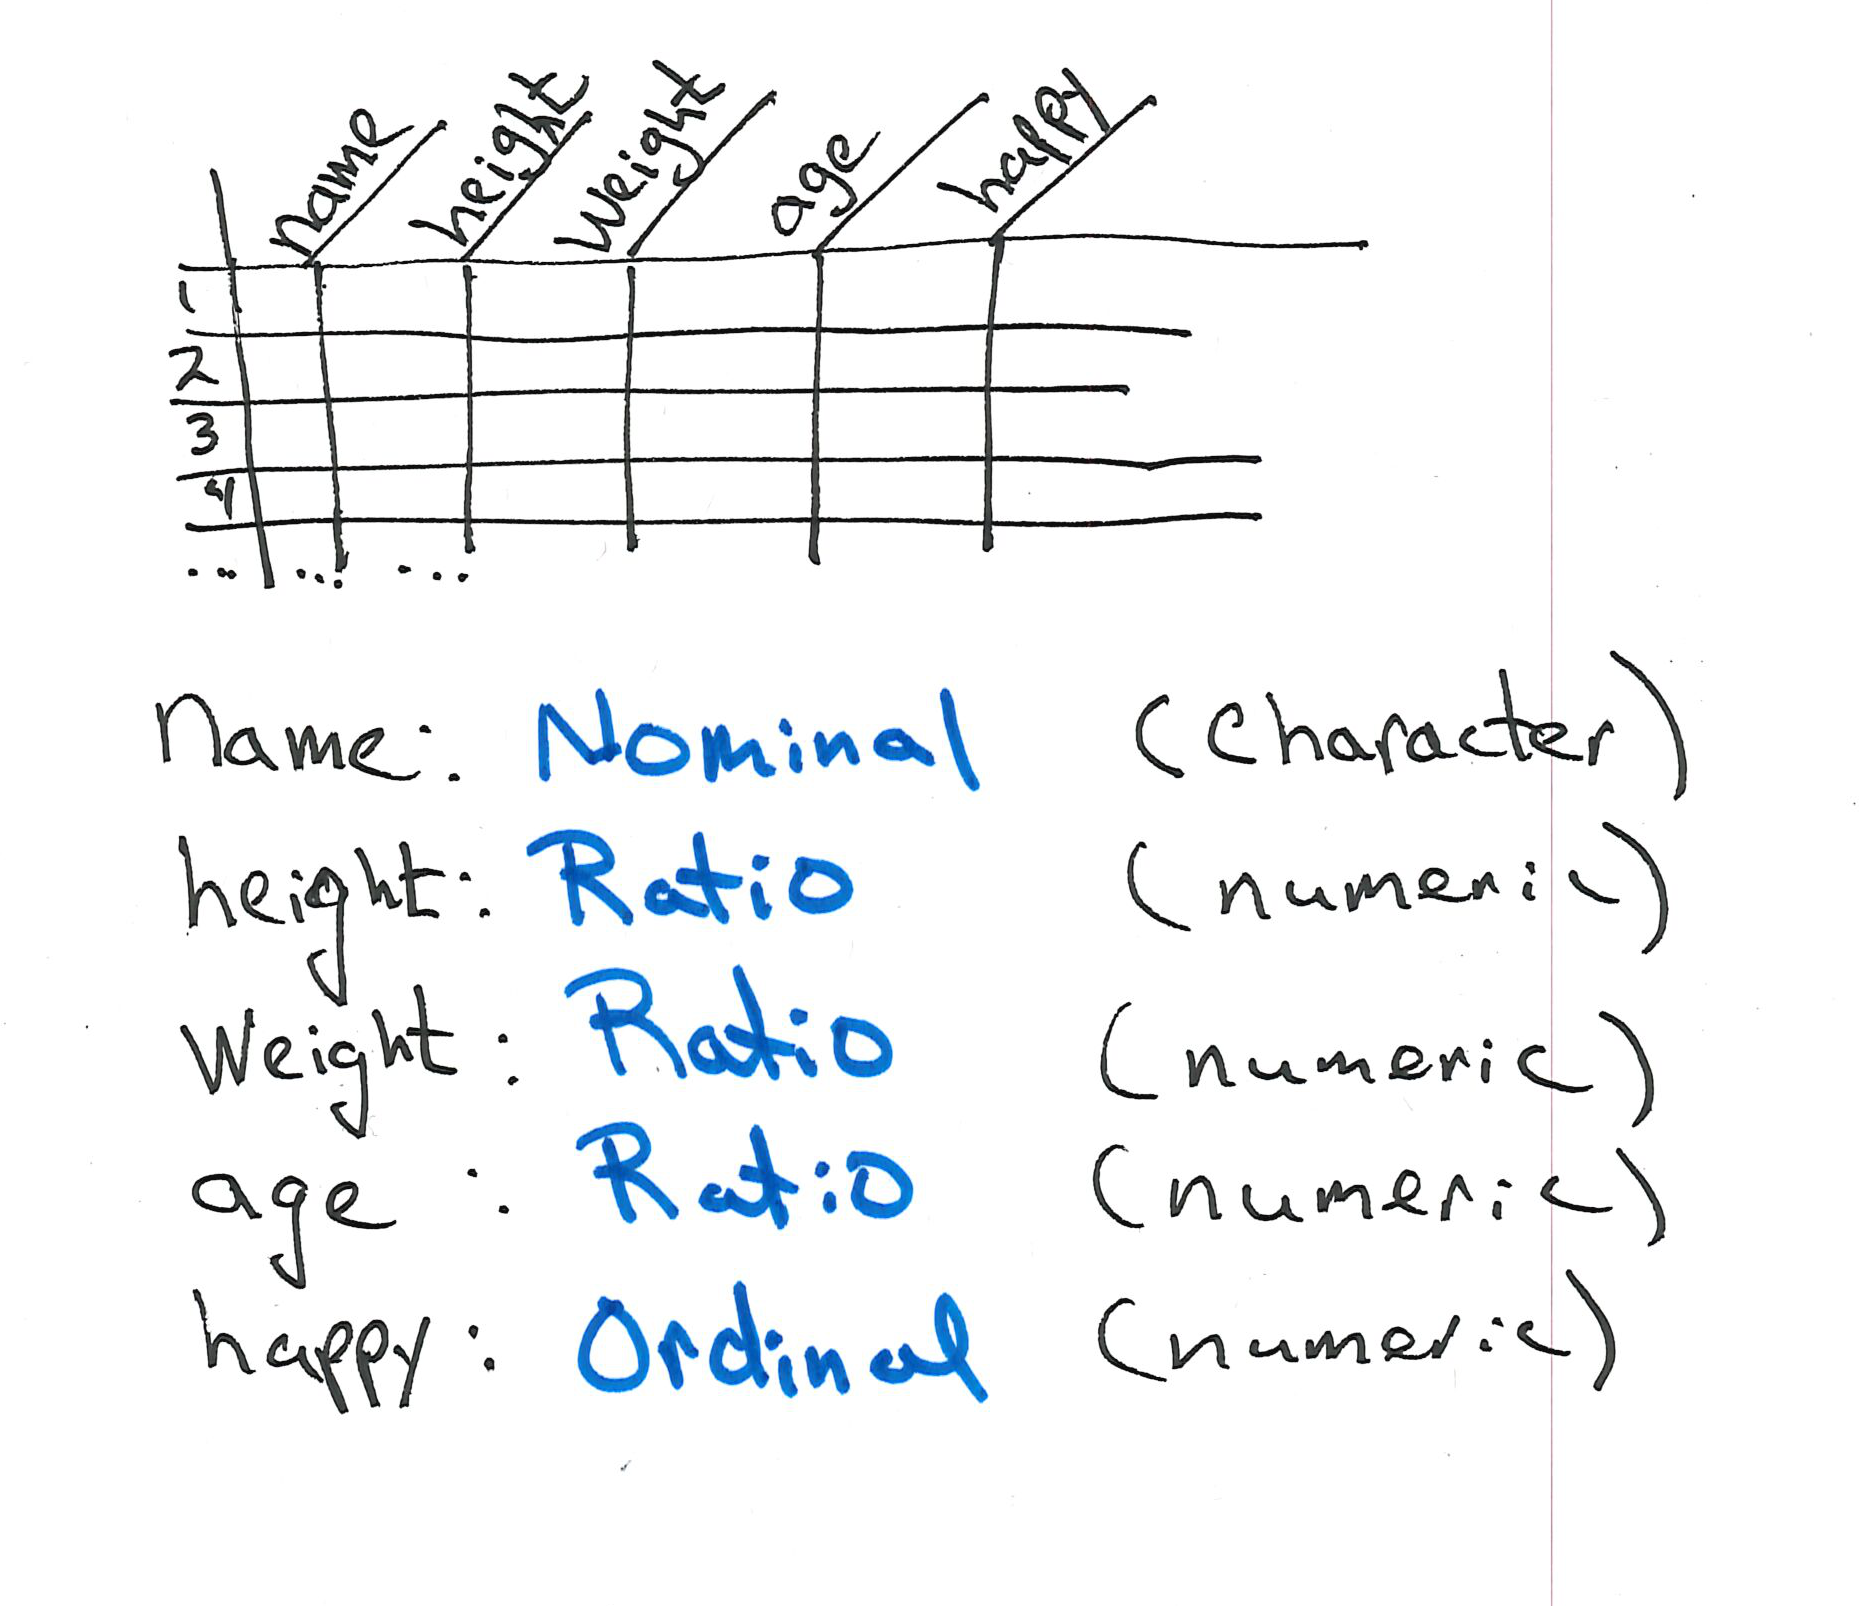 name height weight age happy
1
2
3
4
... ... ...
Name: Nominal (Character)
height: Ratio (numeric)
Weight: Ratio (numeric)
age: Ratio (numeric)
happy: Ordinal (numeric)